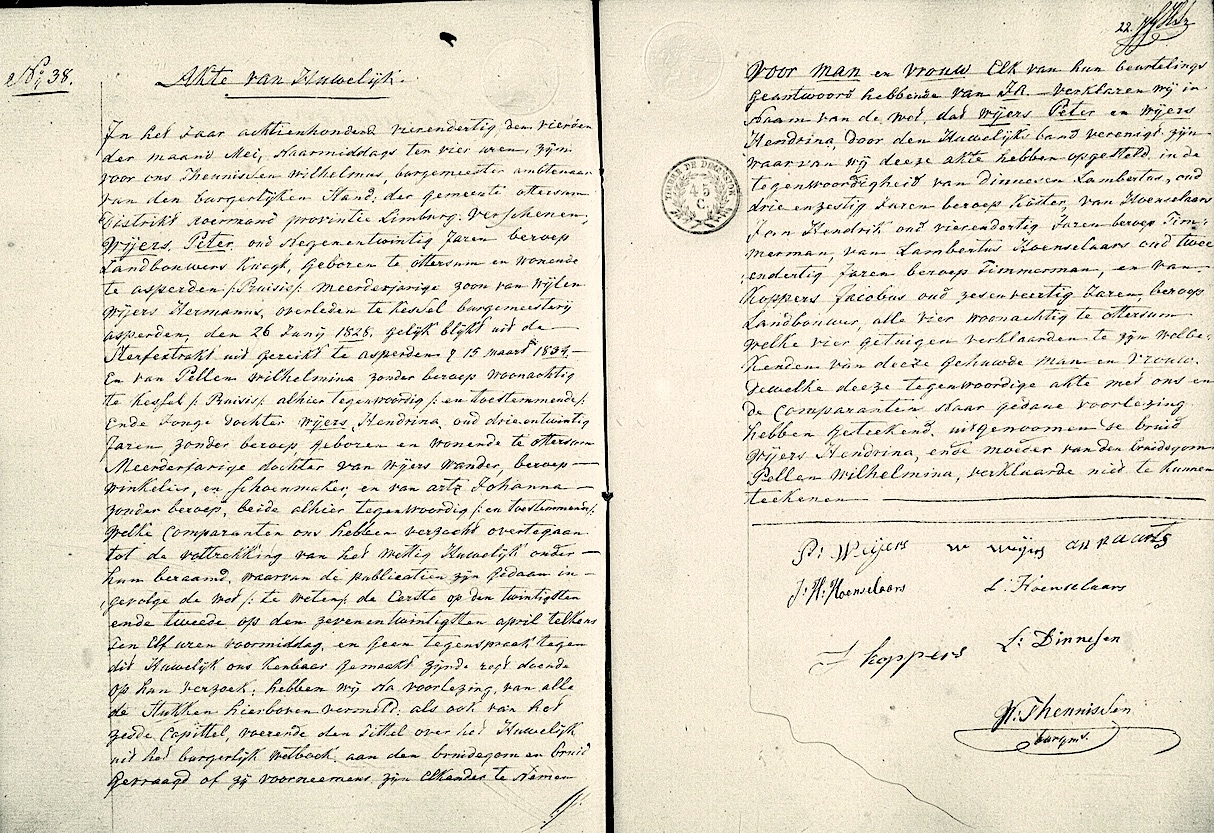 No. 38.
Akte van Huwelijk.
In het Jaar achttienhonderd vierendertig den vierden
der maand Mei, Naarmiddags ten vier uren, zijn
voor ons Thennissen Wilhelmus, burgemeester ambtenaar
van den burgerlijken Stand, der gemeente ottersum
Distrikt roermond provintie Limburg: verschenen,
Wijers, Peter, oud Negenentwintig Jaren beroep
Landbouwers Knegt, Geboren te ottersum en wonende
te asperden /:Pruisis/: meerderjarige zoon van wijlen
Wijers Hermanus, overleden te kessel burgemeesterij
asperden, den 26 Junij 1828, gelijk blijkt uit de
Sterfextrakt uit gereikt te asperden 15 maart 1834.
En van Pellen Wilhelmina zonder beroep woonachtig
te kessel /: Pruisis/: alhier tegenwoordig /: en toestemmende/:
Ende Jonge dochter Wijers, Hendrina oud drieentwintig
Jaren zonder beroep geboren en wonende te ottersum
Meerderjarige dochter van wijers wander, beroep
winkelier, en schoenmaker, en van artz Johanna
zonder beroep, beide alhier tegenwoordig /: en toestemmend/:
welke Comparanten ons hebben verzocht overtegaan
tot de voltrekking van het wettig Huwelijk onder
hun beraamd, waarvan de publicatien zijn gedaan in
gevolge de wet /: te weten/: de Eerste op den twintigsten
ende tweede op den zevenentwintigsten april telkens
ten Elf uren voormiddag, en geen tegenspraak tegen
dit Huwelijk ons kenbaar gemaakt zijnde regt doende
op hun verzoek, hebben wij Na voorlezing, van alle
de Stukken hierboven vermeld, als ook van het
zesde Capittel, voerende den Tithel over het Huwelijk
uit het burgerlijk wetboek, aan den bruidegom en bruid
gevraagd of zij voornemens zijn Elkander te Nemen
22.
Voor man en vrouw Elk van hun beurtelings
geantwoord hebbende van JA verklaren wij in
Naam van de wet, dat wijers Peter en wijers
Hendrina, door den Huwelijks band verenigt zijn
waarvan wij deeze akte hebben opgesteld, in de
tegenwoordigheid van Dinnesen Lambertus, oud
drie enzestig Jaren beroep Koster, van Hoenselaars
Jan Hendrik oud vierendertig Jaren beroep Tim-
merman, van Lambertus Hoenselaars oud twee
endertig Jaren beroep Timmerman, en van
Koppers Jacobus oud zesenveertig Jaren, beroep
Landbouwer, alle vier woonachtig te ottersum
welke vier getuigen verklaarden te zijn welbe-
kenden van deeze gehuwde man en vrouw.
Dewelke deeze tegenwoordige akte met ons en
de Comparanten Naar gedane voorlezing
hebben geteekend. uitgenoomen de bruid
Wijers Hendrina, ende moeder van den bruidegom
Pellen Wilhelmina, verklaarde niet te kunnen
teekenen
45
C.
P. Weijers
W Wijers
J: H: Hoenselaars
L. Hoenselaars
J koppers
L: Dinnesen
W: Thennissen
burgmr.